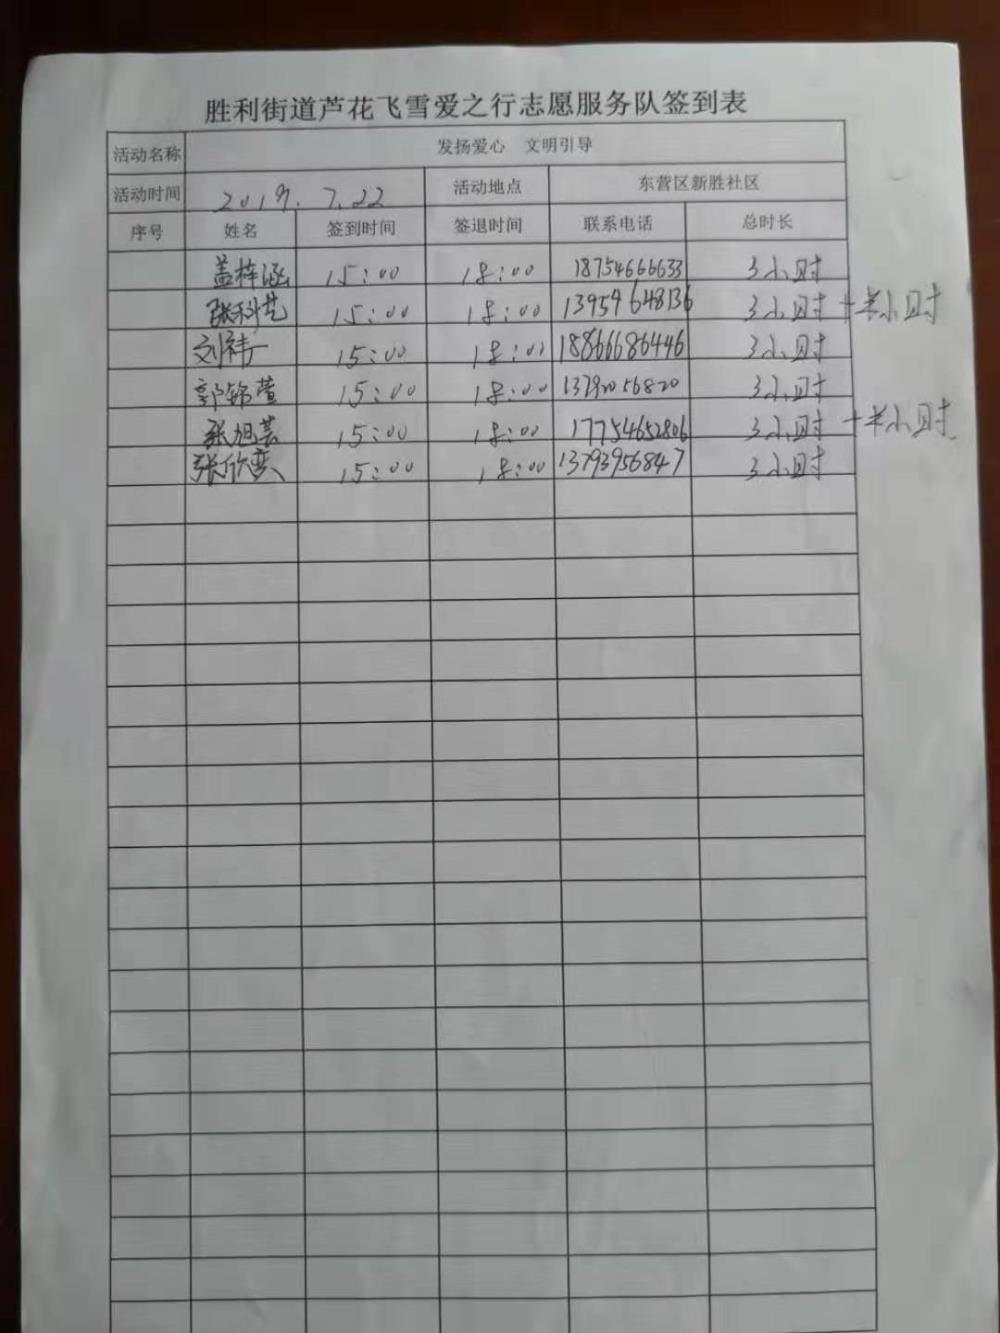 胜利街道芦花飞雪爱之行志愿服务队签到表
活动名称 发扬爱心 文明引导
活动时间 2019.7.22 活动地点 东营区新胜社区
序号 姓名 签到时间 签退时间 联系电话 总时长
盖梓涵 15:00 18:00 18754666633 3小时
张科艺 15:00 18:00 13954648136 3小时 +半小时
刘祎一 15:00 18:00 18866686446 3小时
郭锦萱 15:00 18:00 3小时
张旭芸 15:00 18:00 17754652806 3小时 +半小时
张欣奕 15:00 18:00 13793956847 3小时